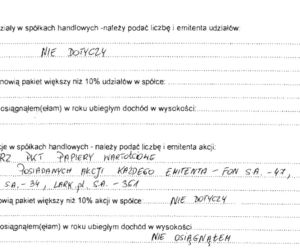 ziały w spółkach handlowych -należy podać liczbę i emitenta udziałów:
NIE DOTYCZY
nowią pakiet większy niż 10% udziałów w spółce:
osiągnąłem(ęłam) w roku ubiegłym dochód w wysokości:
je w spółkach handlowych - należy podać liczbę i emitenta akcji:
RZ PKT PAPIERY WARTOŚCIOWE
POSIADANYCH AKCJI KAŻDEGO EMITENTA - FON S.A. - 47,
S.A. - 34, LARK.pl S.A. - 361
owią pakiet większy niż 10% akcji w spółce NIE DOTYCZY
osiągnąłem(ęłam) w roku ubiegłym dochód w wysokości
NIE OSIĄGNĄŁEM